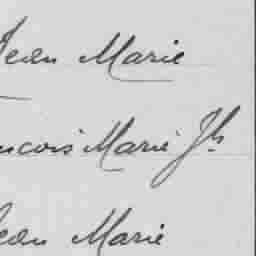 Jean Marie
ncois Marie Jh
Jean Marie